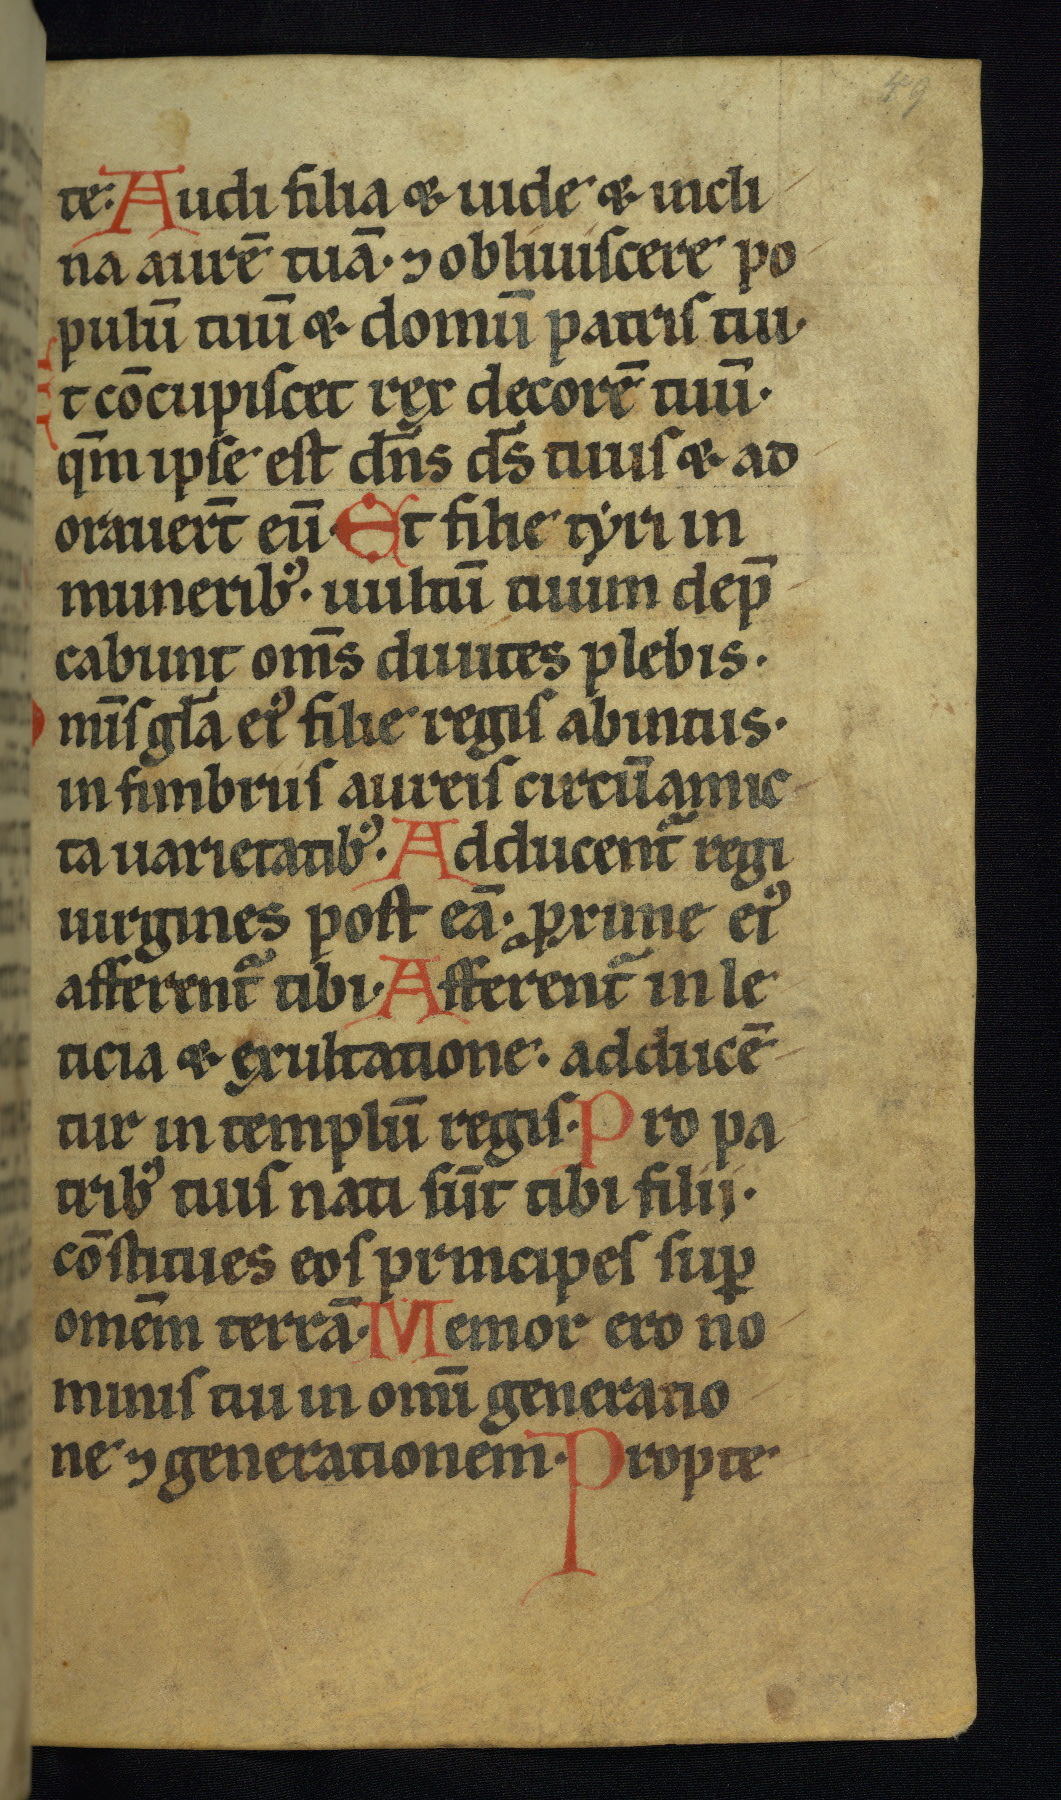 49
te: Audi filia & uide & incli
na aurē tuā· ⁊ obliuiscere po
pulū tuū & domū patris tui·
Et cōcupiscet rex decorē tuū·
qm̄ ipse est dn̄s ds̄ tuus & ad
orauert̄ eū· Et filie tyri in
muneribꝰ· uultū tuum dep̄
cabunt om̄s diuites plebis·
Om̄is gl̄a eiꝰ filie regis abintus·
in fimbriis aureis circū amic
ta uarietatibꝰ· Adducent᷑ regi
uirgines post eā· ꝓxime eiꝰ
afferent᷑ tibi· Afferent᷑ in le
ticia & exultatione· adducē
tur in templū regis· Pro pa
tribꝰ tuis nati sūt tibi filii·
cōstitues eos principes suꝑ
omēm terrā· Memor ero no
minis tui in omi̅ generatio
ne ⁊ generationem· Propte